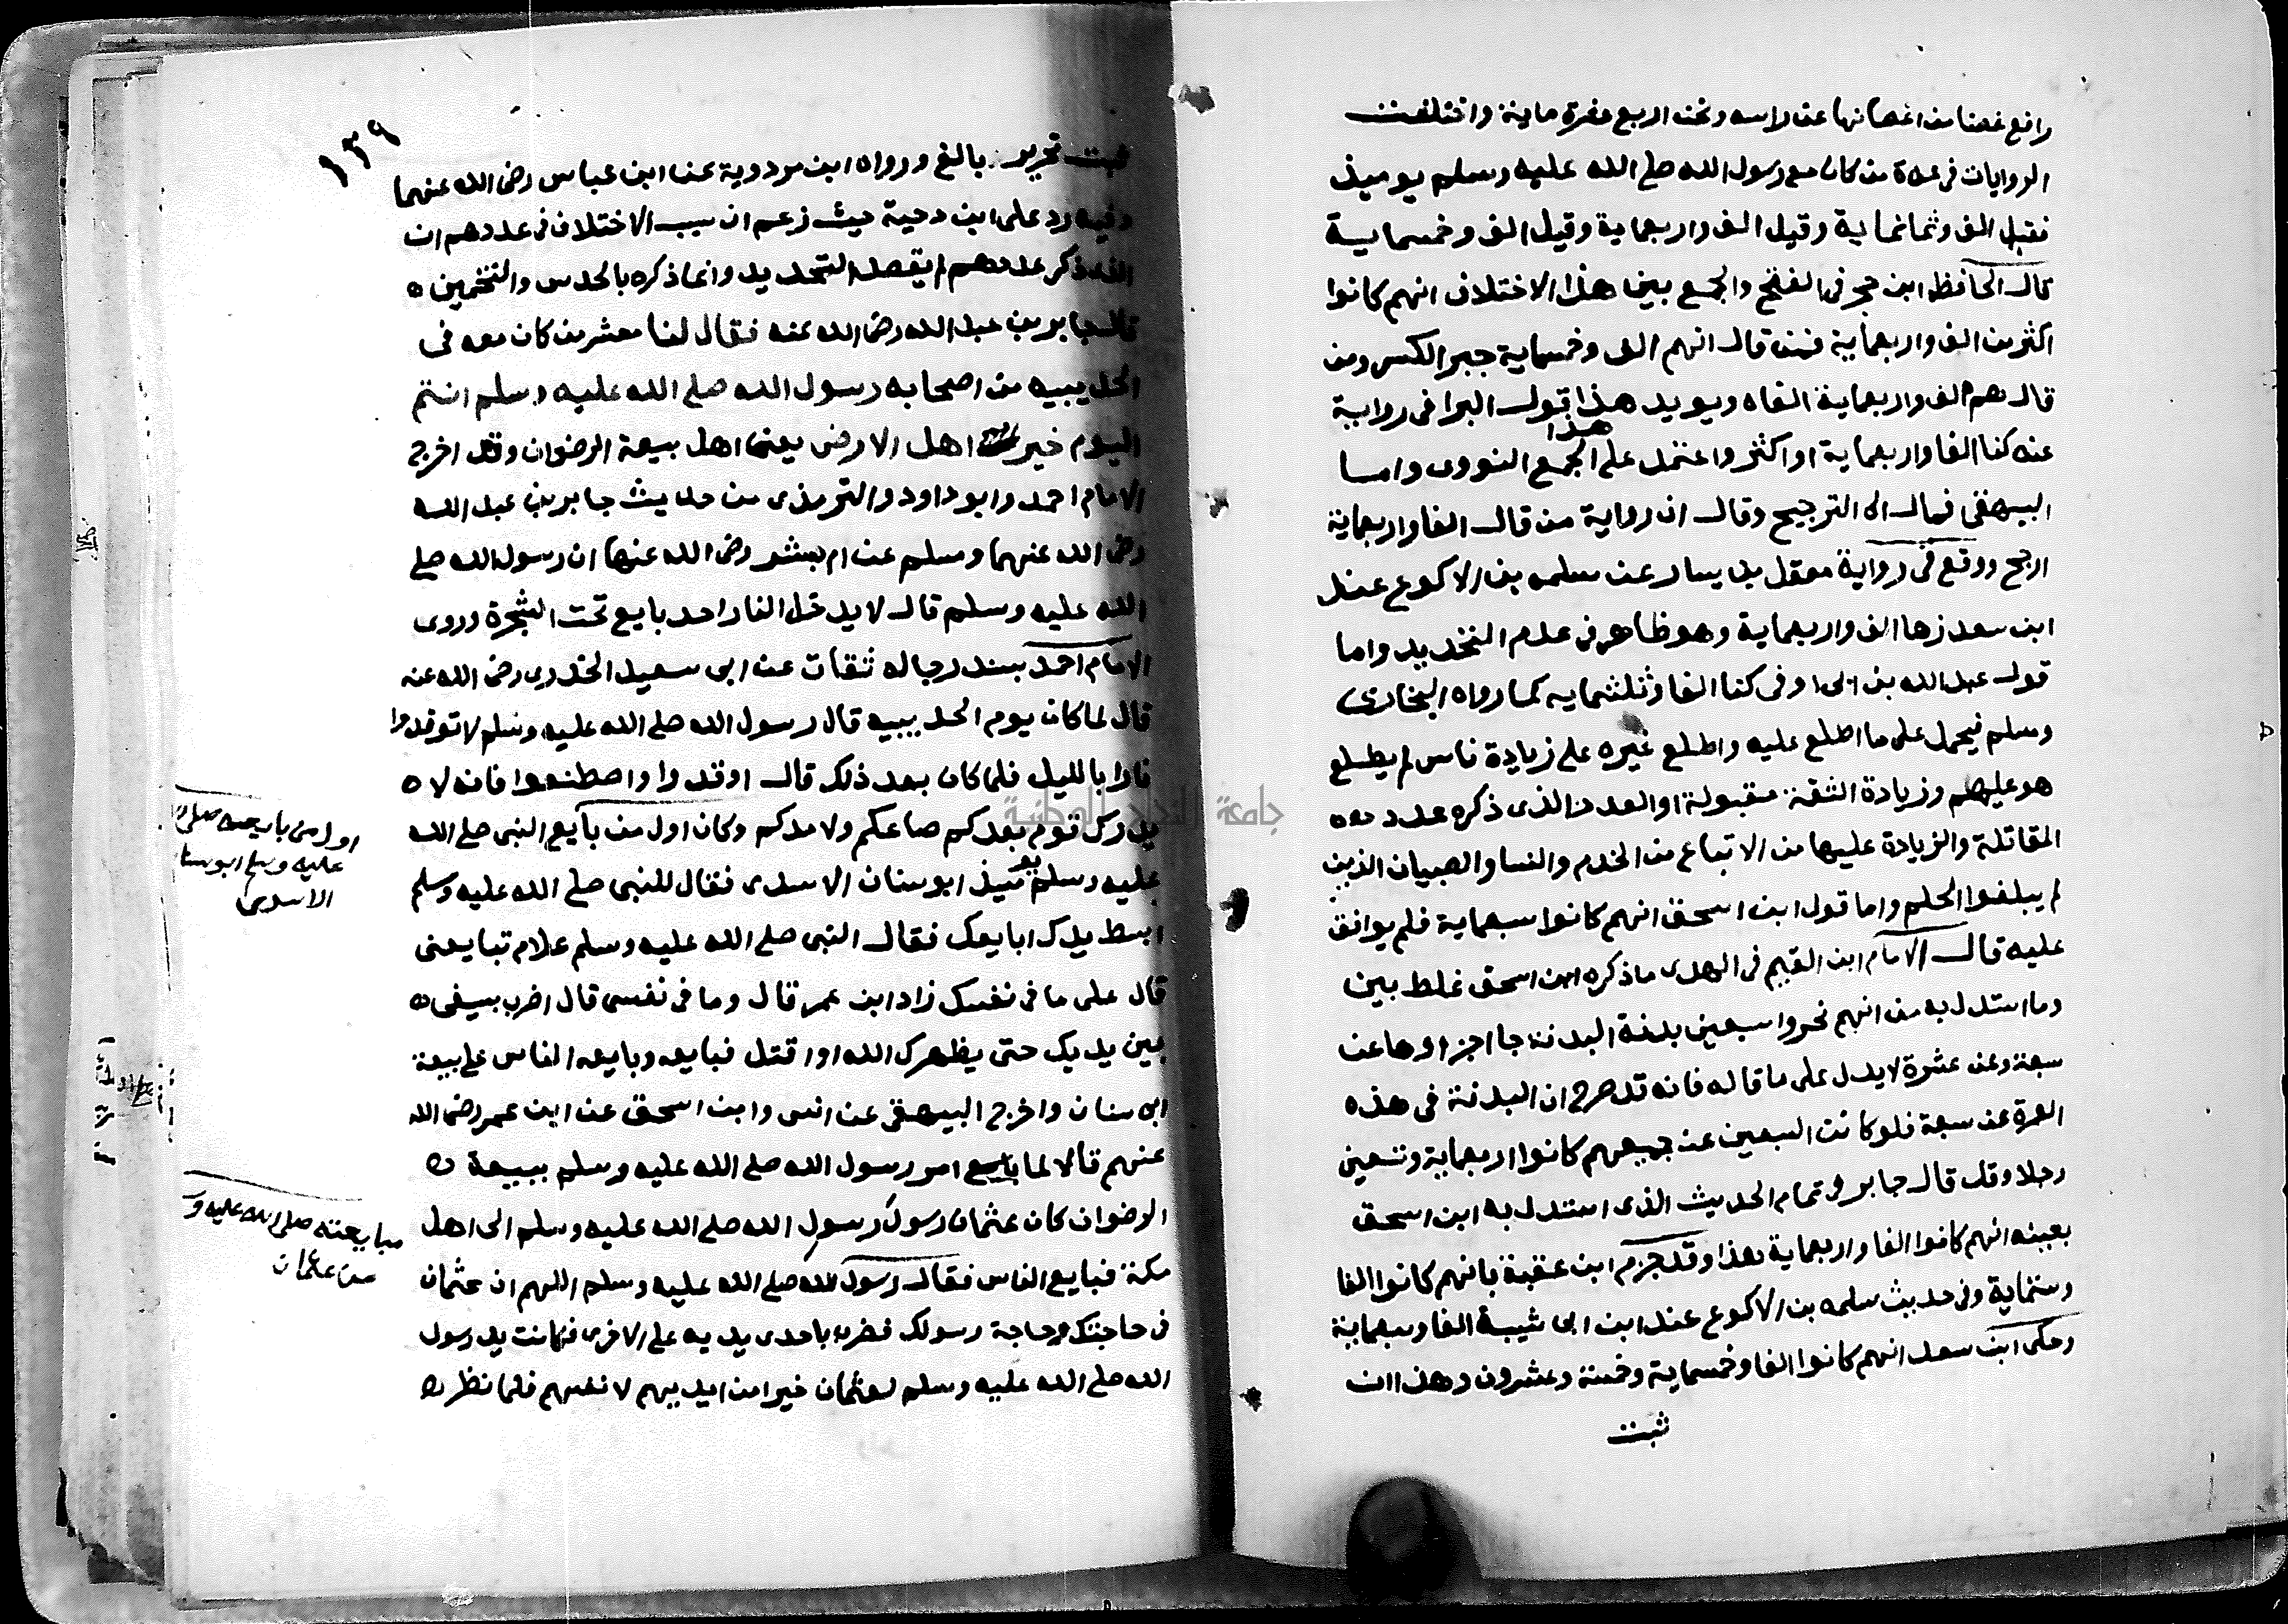 رافع غصنا من اغصانها عن راسه ونحن اربع عشرة ماية واختلفت
الروايات في عدة من كان مع رسول الله صلى الله عليه وسلم يوميذ
فقيل الف وثمانماية وقيل الف واربعماية وقيل الف وخمسماية
قال الحافظ ابن حجر في الفتح والجمع بين هذا الاختلاف انهم كانوا
اكثر من الف واربعماية فمن قال انهم الف وخمسماية جبر الكسر ومن
قال هم الف واربعماية الغاه ويويد هذا قول البرا في رواية
عنه كنا الفا واربعماية او اكثر واعتمد على هذا الجمع النووى واما
البيهقى فمال الى الترجيح وقال ان رواية من قال الفا واربعماية
ارجح ووقع في رواية معقل بن يسار عن سلمه بن الاكوع عند
ابن سعد زها الف واربعماية وهو ظاهر في عدم التحديد واما
قول عبد الله بن ابى اوفى كنا الفا وثلثمايه كما رواه البخارى
وسلم فيحمل على ما اطلع عليه واطلع غيره على زيادة ناس لم يطلع
هو عليهم وزيادة الثقة مقبولة او العدد الذى ذكره عدد
المقاتلة والزيادة عليها من الاتباع من الخدم والنسا والصبيان الذين
لم يبلغوا الحلم واما قول ابن اسحق انهم كانوا سبعماية فلم يوافق
عليه قال الامام ابن القيم في الهدى ما ذكره ابن اسحق غلط بين
وما استدل به من انهم نحروا سبعين بدنة البدنة جا اجزاوها عن
سبعة وعن عشرة لا يدل على ما قاله فانه قد صرح ان البدنة في هذه
العمرة عن سبعة فلو كانت السبعين عن جميعهم كانوا اربعماية وتسعين
رجلا وقد قال جابر في تمام الحديث الذى استدل به ابن اسحق
بعينه انهم كانوا الفا واربعماية هذا وقد جزم ابن عقبة بانهم كانوا الفا
وستماية وفي حديث سلمه بن الاكوع عند ابن ابى شيبة الفا وسبعماية
وحكى ابن سعد انهم كانوا الفا وخمسماية وخمسة وعشرون وهذا ان
ثبت
١٣٩
ثبت تحرير بالغ ورواه ابن مردوية عن ابن عباس رضى الله عنهما
وفيه رد على ابن دحية حيث زعم ان سبب الاختلاف في عددهم ان
الذى ذكر عددهم لم يقصد التحديد وانما ذكره بالحدس والتخمين ه
قال جابر بن عبد الله رضى الله عنه فقال لنا معشر من كان معه في
الحديبيه من اصحابه رسول الله صلى الله عليه وسلم انتم
اليوم خير اهل الارض يعنى اهل بيعة الرضوان وقد اخرج
الامام احمد وابو داود والترمذى من حديث جابر بن عبد الله
رضى الله عنهما ومسلم عن ام بشر رضى الله عنها ان رسول الله صلى
الله عليه وسلم قال لا يدخل النار احد بايع تحت الشجرة وروى
الامام احمد بسند رجاله ثقات عن ابى سعيد الخدرى رضى الله عنه
قال لما كان يوم الحديبيه قال رسول الله صلى الله عليه وسلم لا توقدوا
نارا بالليل فلما كان بعد ذلك قال اوقدوا واصطنعوا فانه لا ه
يدرك قوم بعدكم صاعكم ولا مدكم وكان اول من بايع النبى صلى الله
عليه وسلم يوميذ ابو سنان الاسدى فقال للنبى صلى الله عليه وسلم
ابسط يدك ابايعك فقال النبى صلى الله عليه وسلم علام تبايعنى
قال على ما في نفسك زاد ابن عمر قال وما في نفسى قال اضرب بسيفى ه
بين يديك حتى يظهرك الله او اقتل فبايعه وبايعه الناس على بيعة
ابى سنان واخرج البيهقى عن انس وابن اسحق عن ابن عمر رضى الله
عنهم قالا لما امر رسول الله صلى الله عليه وسلم ببيعة ه
الرضوان كان عثمان رسول رسول الله صلى الله عليه وسلم الى اهل
مكة فبايع الناس فقال رسول الله صلى الله عليه وسلم اللهم ان عثمان
في حاجتك وحاجة رسولك فضرب باحدى يديه على الاخرى فكانت يد رسول
الله صلى الله عليه وسلم لعثمان خيرا من ايديهم لانفسهم فلما نظر ه
اول من بايعه صلى الله
عليه وسلم ابو سنا
الاسدى
مبايعته صلى الله عليه و
عن عثمان
جامعة النجاح الوطنية